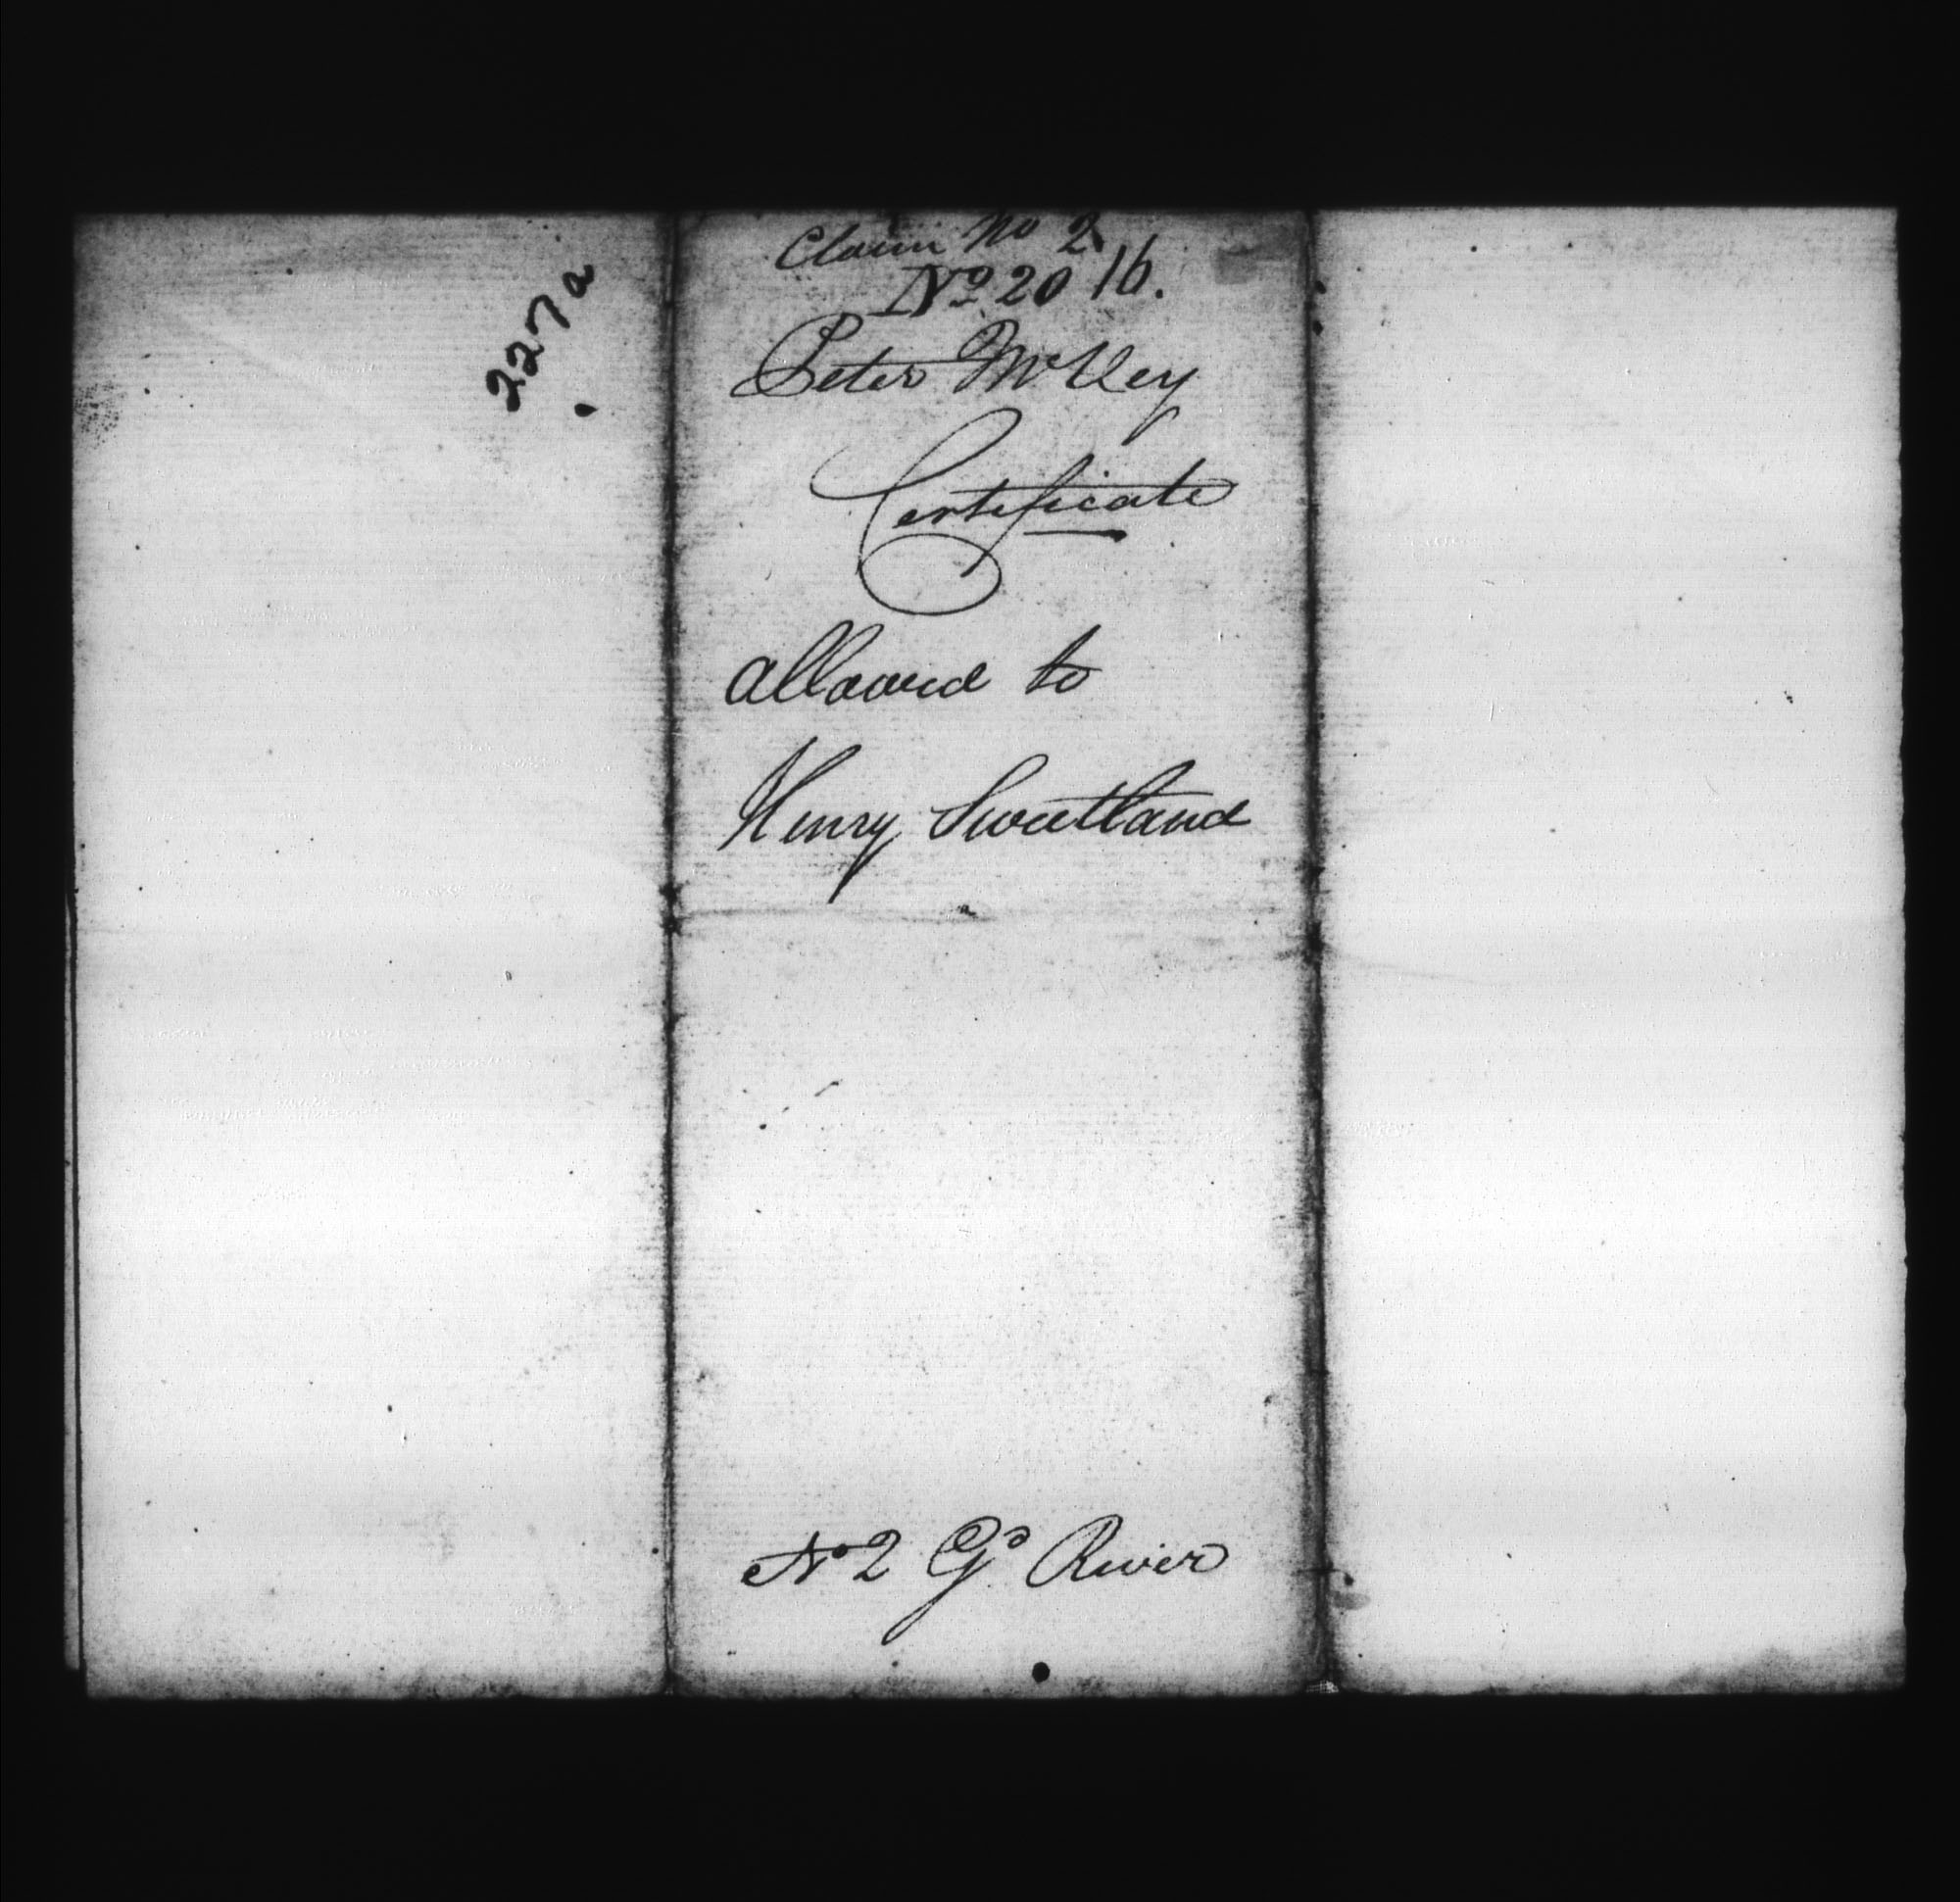 227a
Claim No 2
No 20 16.
Peter McVey
Certificate
allowed to
Henry Sweetland
No 2 Gd River